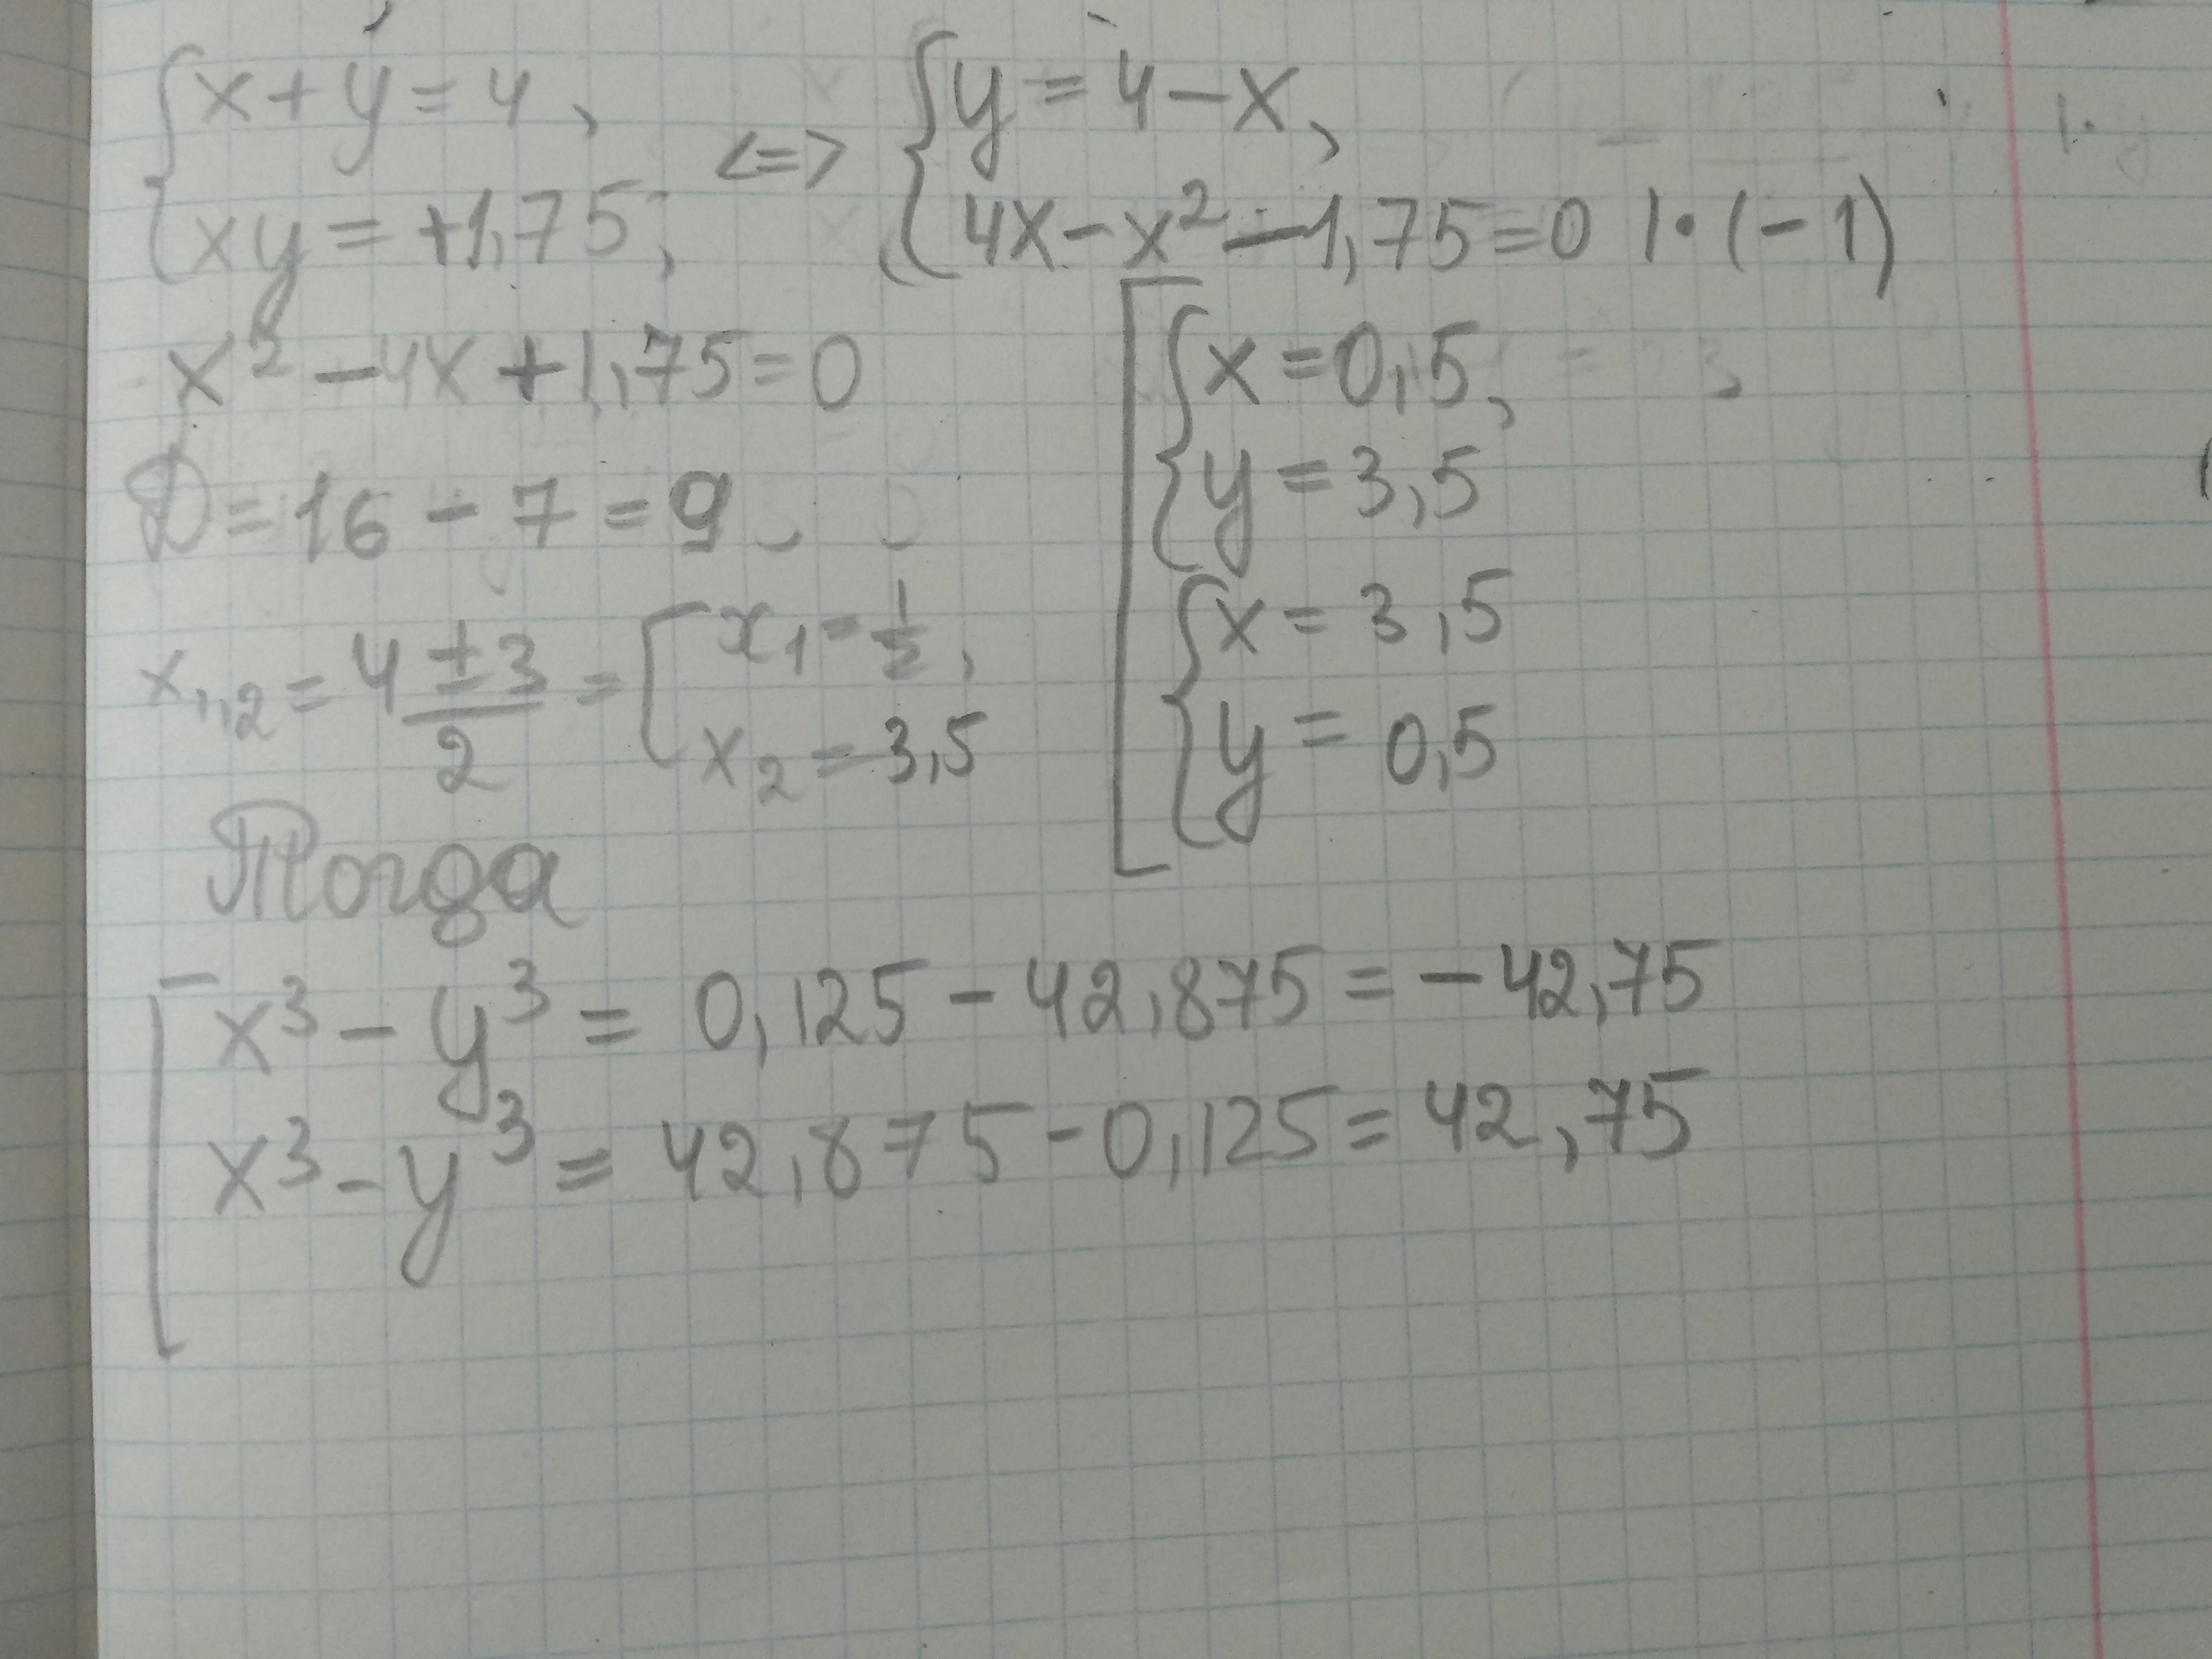 {x+y=4, <=> {y=4-x,
{xy=+1,75; {4x-x²-1,75=0 |·(-1)
x²-4x+1,75=0
D=16-7=9
x₁,₂=(4±3)/2=[x₁=1/2,
x₂=3,5
[{x=0,5,
{y=3,5
{x=3,5
{y=0,5
Тогда
[x³-y³=0,125-42,875=-42,75
x³-y³=42,875-0,125=42,75